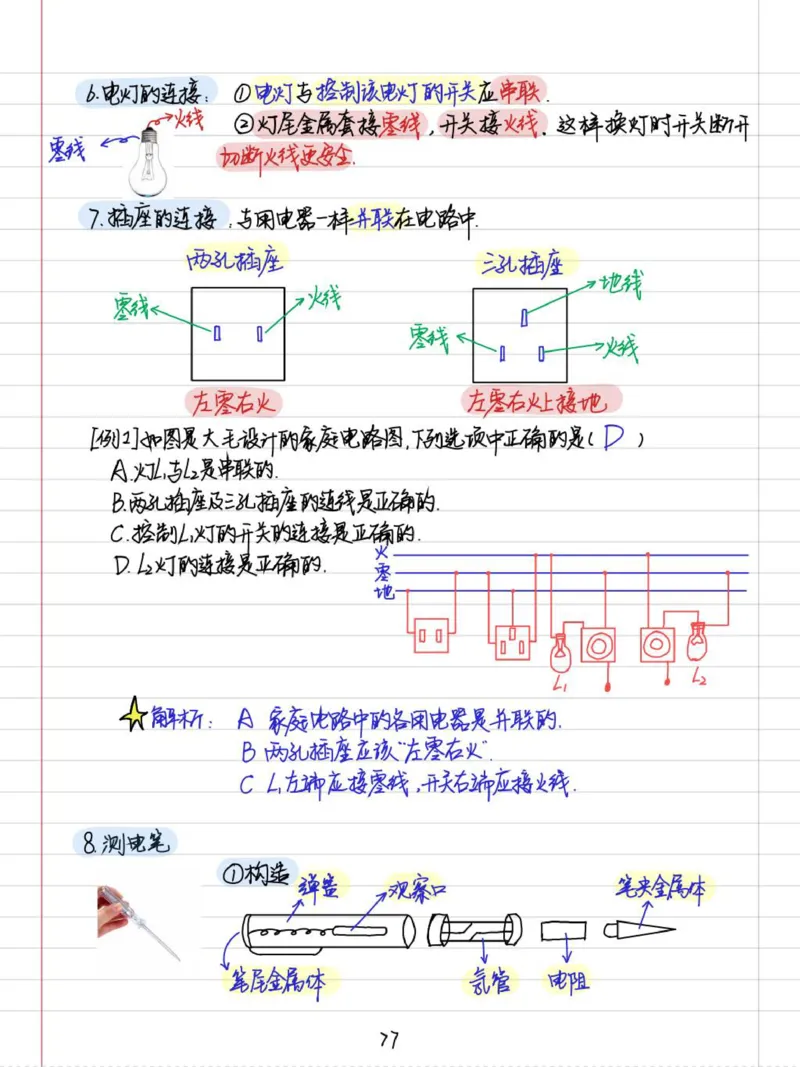 6.电灯的连接: ①电灯与控制该电灯的开关应串联.
火线
零线
②灯尾金属套接零线,开关接火线.这样换灯时开关断开
切断火线更安全.
7.插座的连接:与用电器一样并联在电路中.
两孔插座 三孔插座
零线 火线
地线
零线 火线
左零右火 左零右火上接地
[例2]如图是大毛设计的家庭电路图,下列选项中正确的是( D )
A.灯L1与L2是串联的.
B.两孔插座及三孔插座的连线是正确的.
C.控制L1灯的开关的连接是正确的.
D.L2灯的连接是正确的.
火
零
地
L1 L2
解析: A 家庭电路中的各用电器是并联的.
B 两孔插座应该“左零右火”.
C L1左端应接零线,开关右端应接火线.
8.测电笔
①构造
弹簧 观察口 笔尖金属体
笔尾金属体 氖管 电阻
77